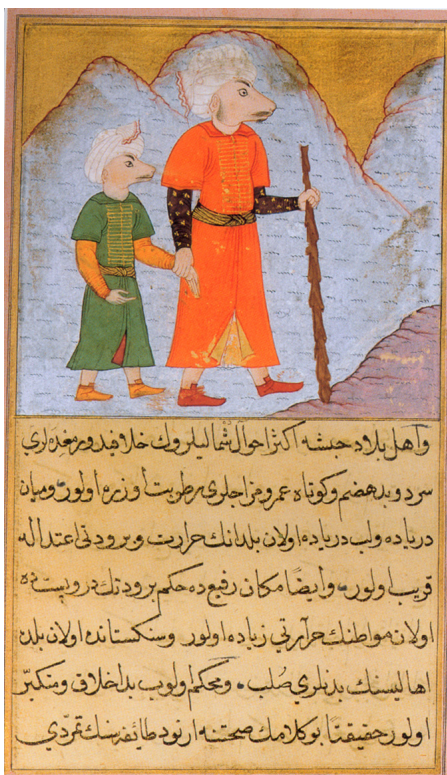 و اهل بلاد حبشه اكثر احوال شماليلروك خلافيدور معده‌لرى
سرد و بد هضم و كوتاه عمر و مزاجلرى برطوبت اوزره اولور و ميان
درياده و لب درياده اولان بلدانك حرارت و برودتى اعتداله
قريب اولور و ايضا مكان رفيع ده حكم برودتك در و پست ده
اولان مواطنك حرارتى زياده اولور و سنكستانده اولان بلده
اهاليسنك بدنلرى صلب و محكم اولوب بد اخلاق و متكبر
اولور حقيقتا بو كلامك صحتنه ارنود طائفه سنك تمردى